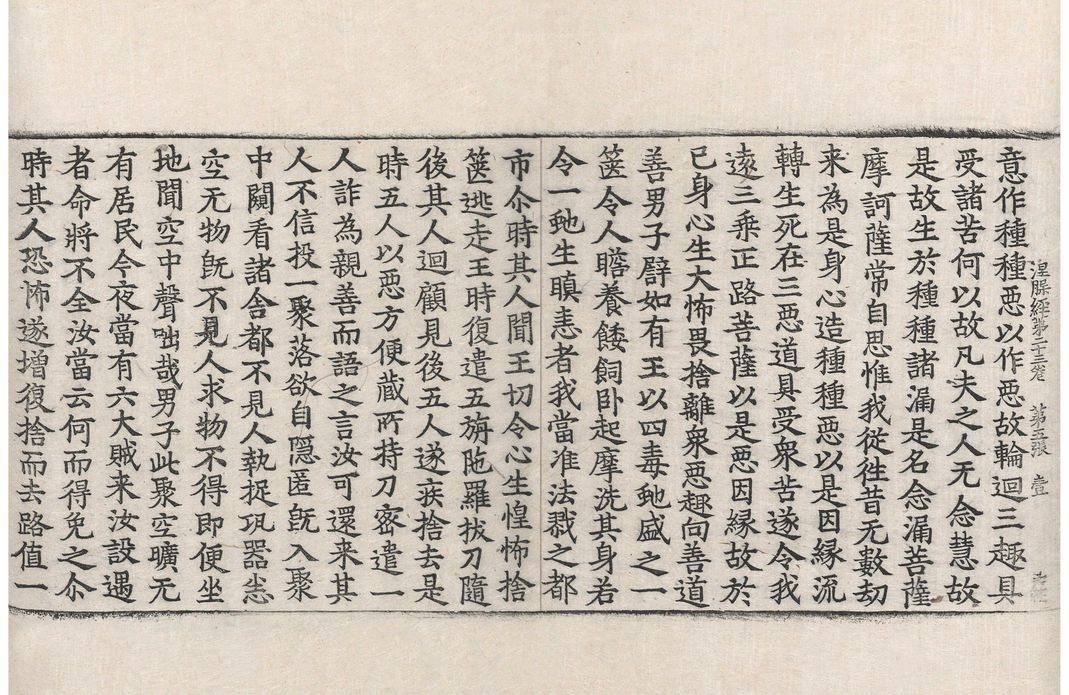 涅槃經第二十三卷　第五張　壹
意作種種惡以作惡故輪迴三趣具
受諸苦何以故凡夫之人无念慧故
是故生於種種諸漏是名念漏菩薩
摩訶薩常自思惟我從往昔无數劫
来為是身心造種種惡以是因緣流
轉生死在三惡道具受衆苦遂令我
遠三乘正路菩薩以是惡因緣故於
已身心生大怖畏捨離衆惡趣向善道
善男子譬如有王以四毒虵盛之一
篋令人瞻養餧飼卧起摩洗其身若
令一虵生瞋恚者我當准法戮之都
市尒時其人聞王切令心生惶怖捨
篋逃走王時復遣五旃陁羅拔刀隨
後其人迴顧見後五人遂疾捨去是
時五人以惡方便藏所持刀密遣一
人詐為親善而語之言汝可還来其
人不信投一聚落欲自隱匿旣入聚
中闚看諸舍都不見人執捉瓨器悉
空无物旣不見人求物不得即便坐
地聞空中聲咄哉男子此聚空曠无
有居民今夜當有六大賊来汝設遇
者命將不全汝當云何而得免之尒
時其人恐怖遂增復捨而去路值一